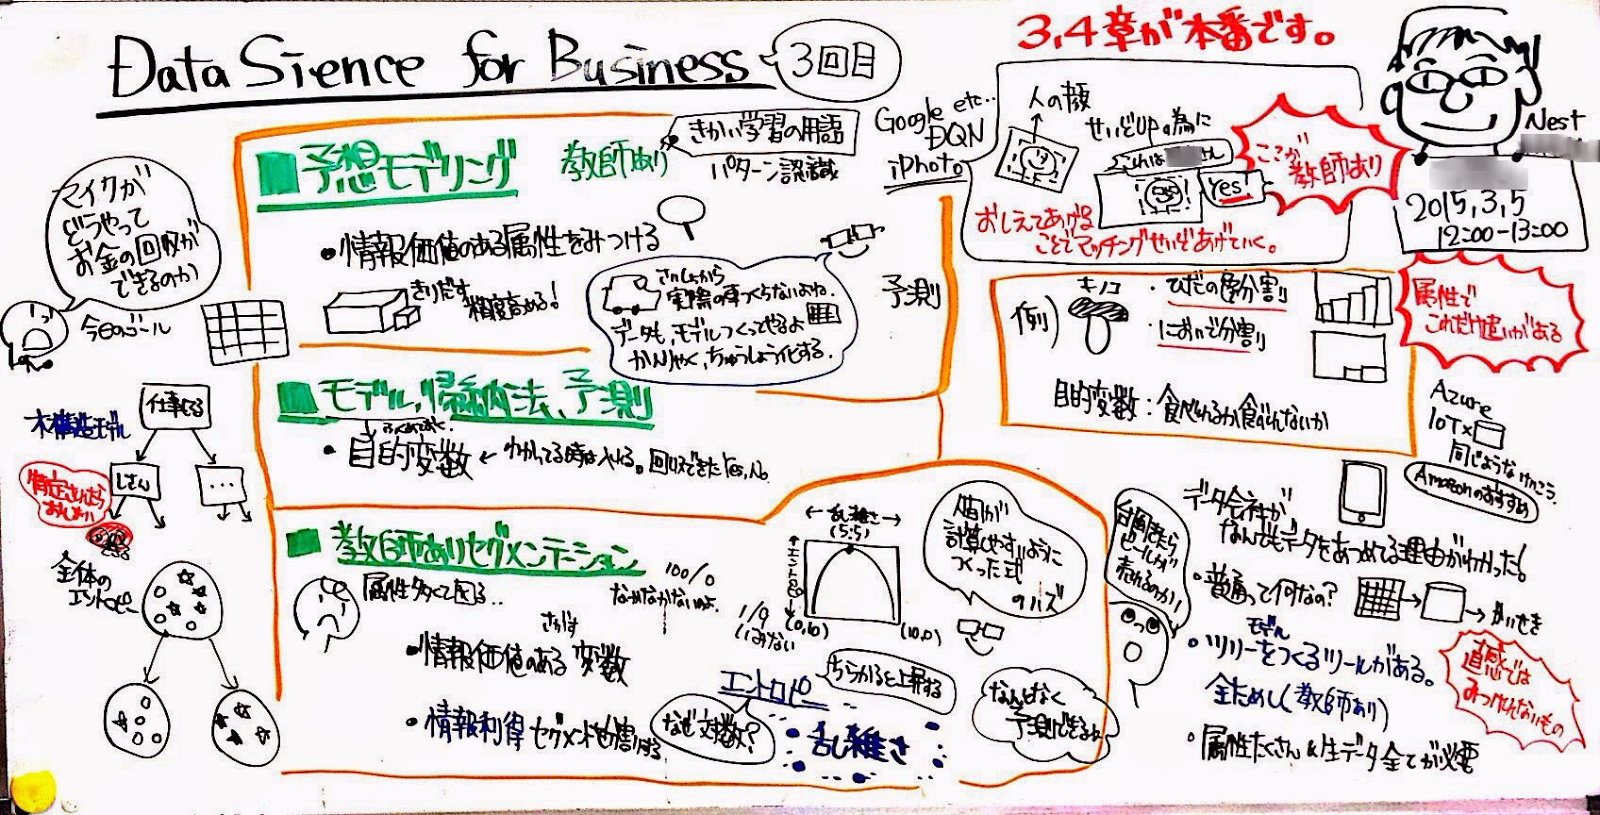 Data Sience for Business
3回目
3,4章が本番です。
Nest
2015,3,5
12:00-13:00
マイクが
どうやって
お金の回収が
できるのか
今日のゴール
予想モデリング
教師あり
きかい学習の用語
パターン認識
・情報価値のある属性をみつける
きりだす
精度高める!
さいしょから
実際の車つくらないよね。
データも、モデルつくってやるよ
かんりゃく、ちゅうしょう化する。
予測
Google etc..
DQN
iPhoto
人の顔
せいどUPの為に
これは
さん
Yes!
ここが
教師あり
おしえてあげる
ことでマッチングせいどあげていく。
例)
キノコ
・ひだの色分割
・においで分割
目的変数:食べれるか食べれないか
属性で
これだけ違いがある
モデル、帰納法、予測
・目的変数
← わかってる時は入れる。回収できたYes,No.
木構造モデル
仕事してる
…
全体の
エントロピー
教師ありセグメンテーション
属性多くて困る..
100/0
なかなかないよ。
1/9
いみない
さがす
・情報価値のある変数
・情報利得
エントロピ
なぜ対数?
ちらかると上昇する
乱雑さ
←乱雑さ→
(5:5)
(0,10)
(10,0)
人間が
計算しやすいように
つくった式
のハズ
なんとなく
予測できるね
台風来たら
ビールが
売れるのか!
Azure
IoT×
同じような
Amazonのおすすめ
データ会社が
なんでもデータをあつめてる理由がわかった!
・普通って何なの?
かいせき
モデル
・ツリーをつくるツールがある。
全ためし(教師あり)
・属性たくさん&生データ全てが必要
直感では
みつけれないもの